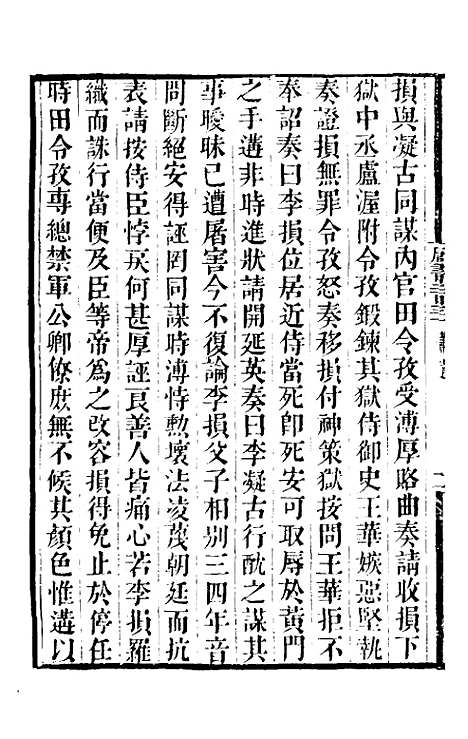 損與凝古同謀內官田令孜受溥厚賂曲奏請收損下
獄中丞盧渥附令孜鍛鍊其獄侍御史王華嫉惡堅執
奏證損無罪令孜怒奏移損付神策獄按問王華拒不
奉詔奏曰李損位居近侍當死即死安可取辱於黃門
之手遘非時進狀請開延英奏曰李凝古行酖之謀其
事曖昧已遭屠害今不復論李損父子相別三四年音
問斷絕安得誣罔同謀時溥恃勲壞法凌蔑朝廷而抗
表請按侍臣悖戾何甚厚誣良善人皆痛心若李損羅
織而誅行當便及臣等帝為之改容損得免止於停任
時田令孜專總禁軍公卿僚庶無不候其顏色惟遘以